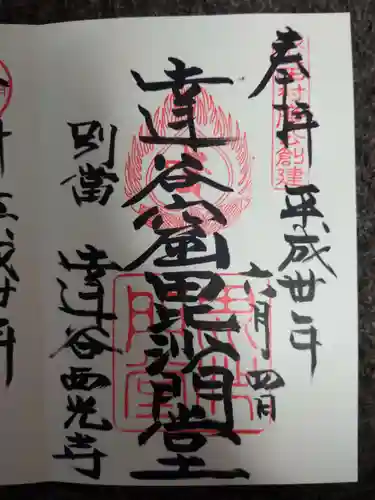 奉拝 平成丗年
六月四日
達谷窟毘沙門堂
別當 達谷西光寺
公創建